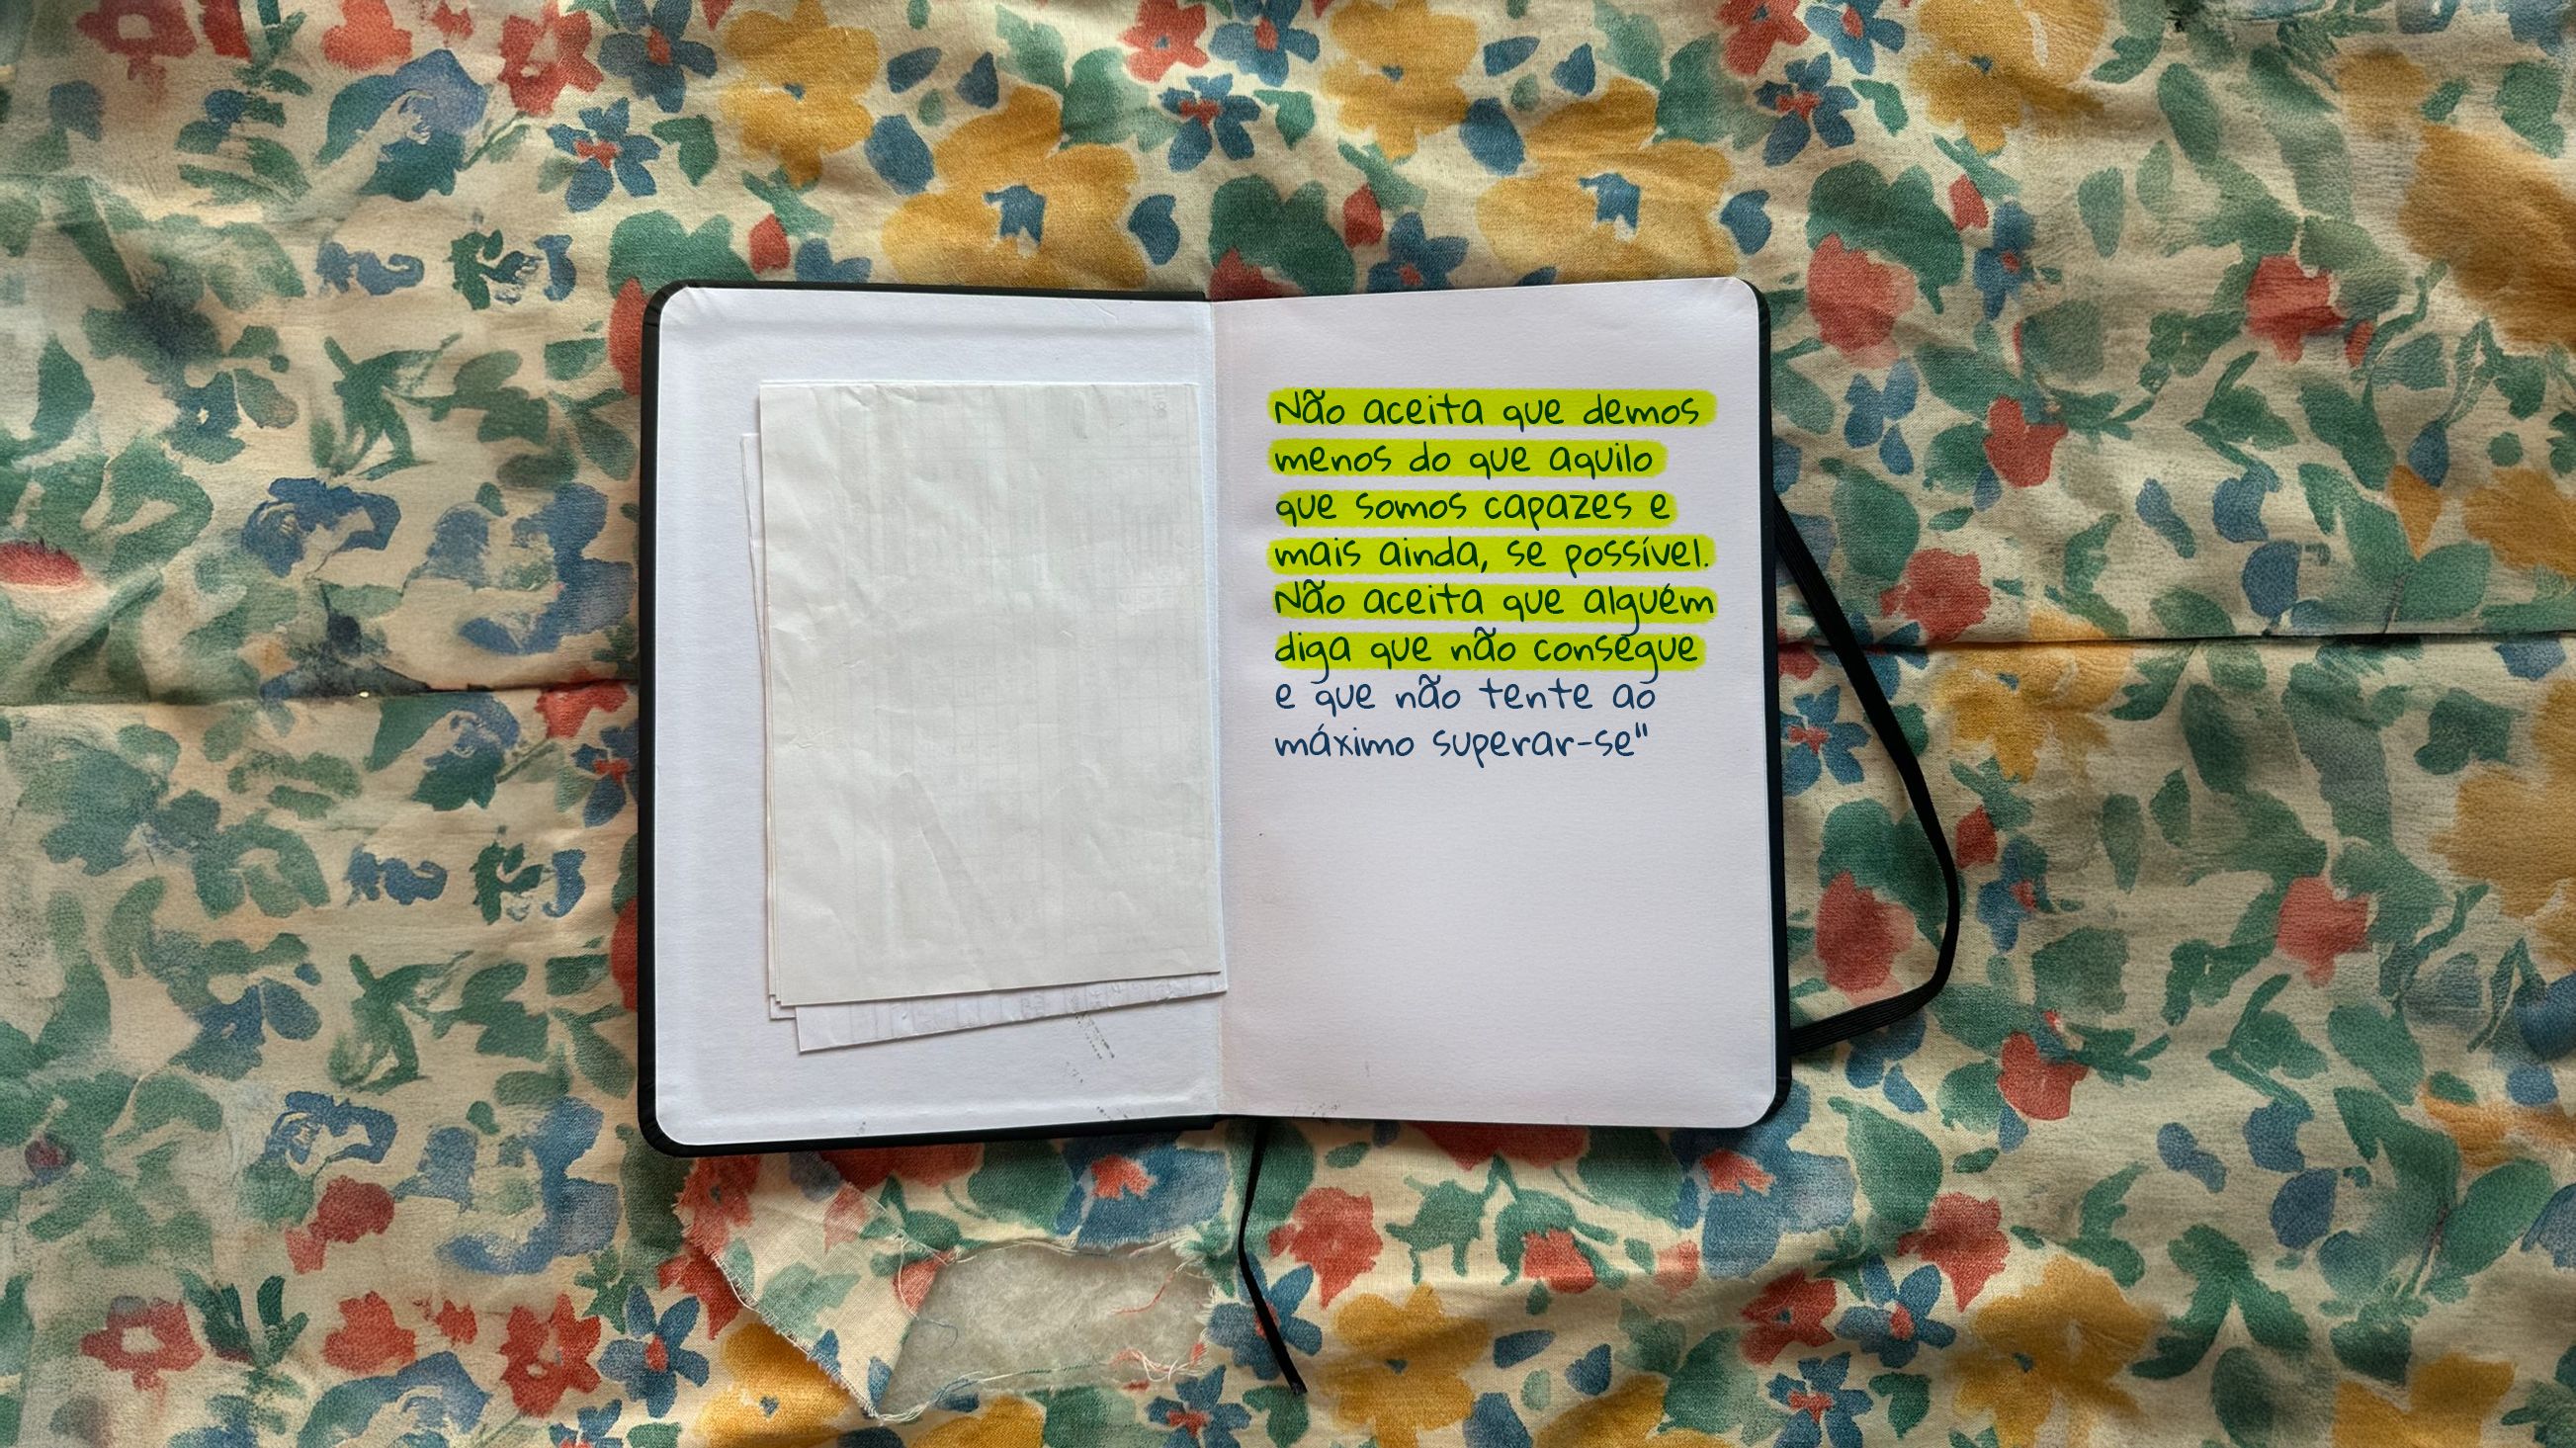 Não aceita que demos
menos do que aquilo
que somos capazes e
mais ainda, se possível.
Não aceita que alguém
diga que não consegue
e que não tente ao
máximo superar-se"